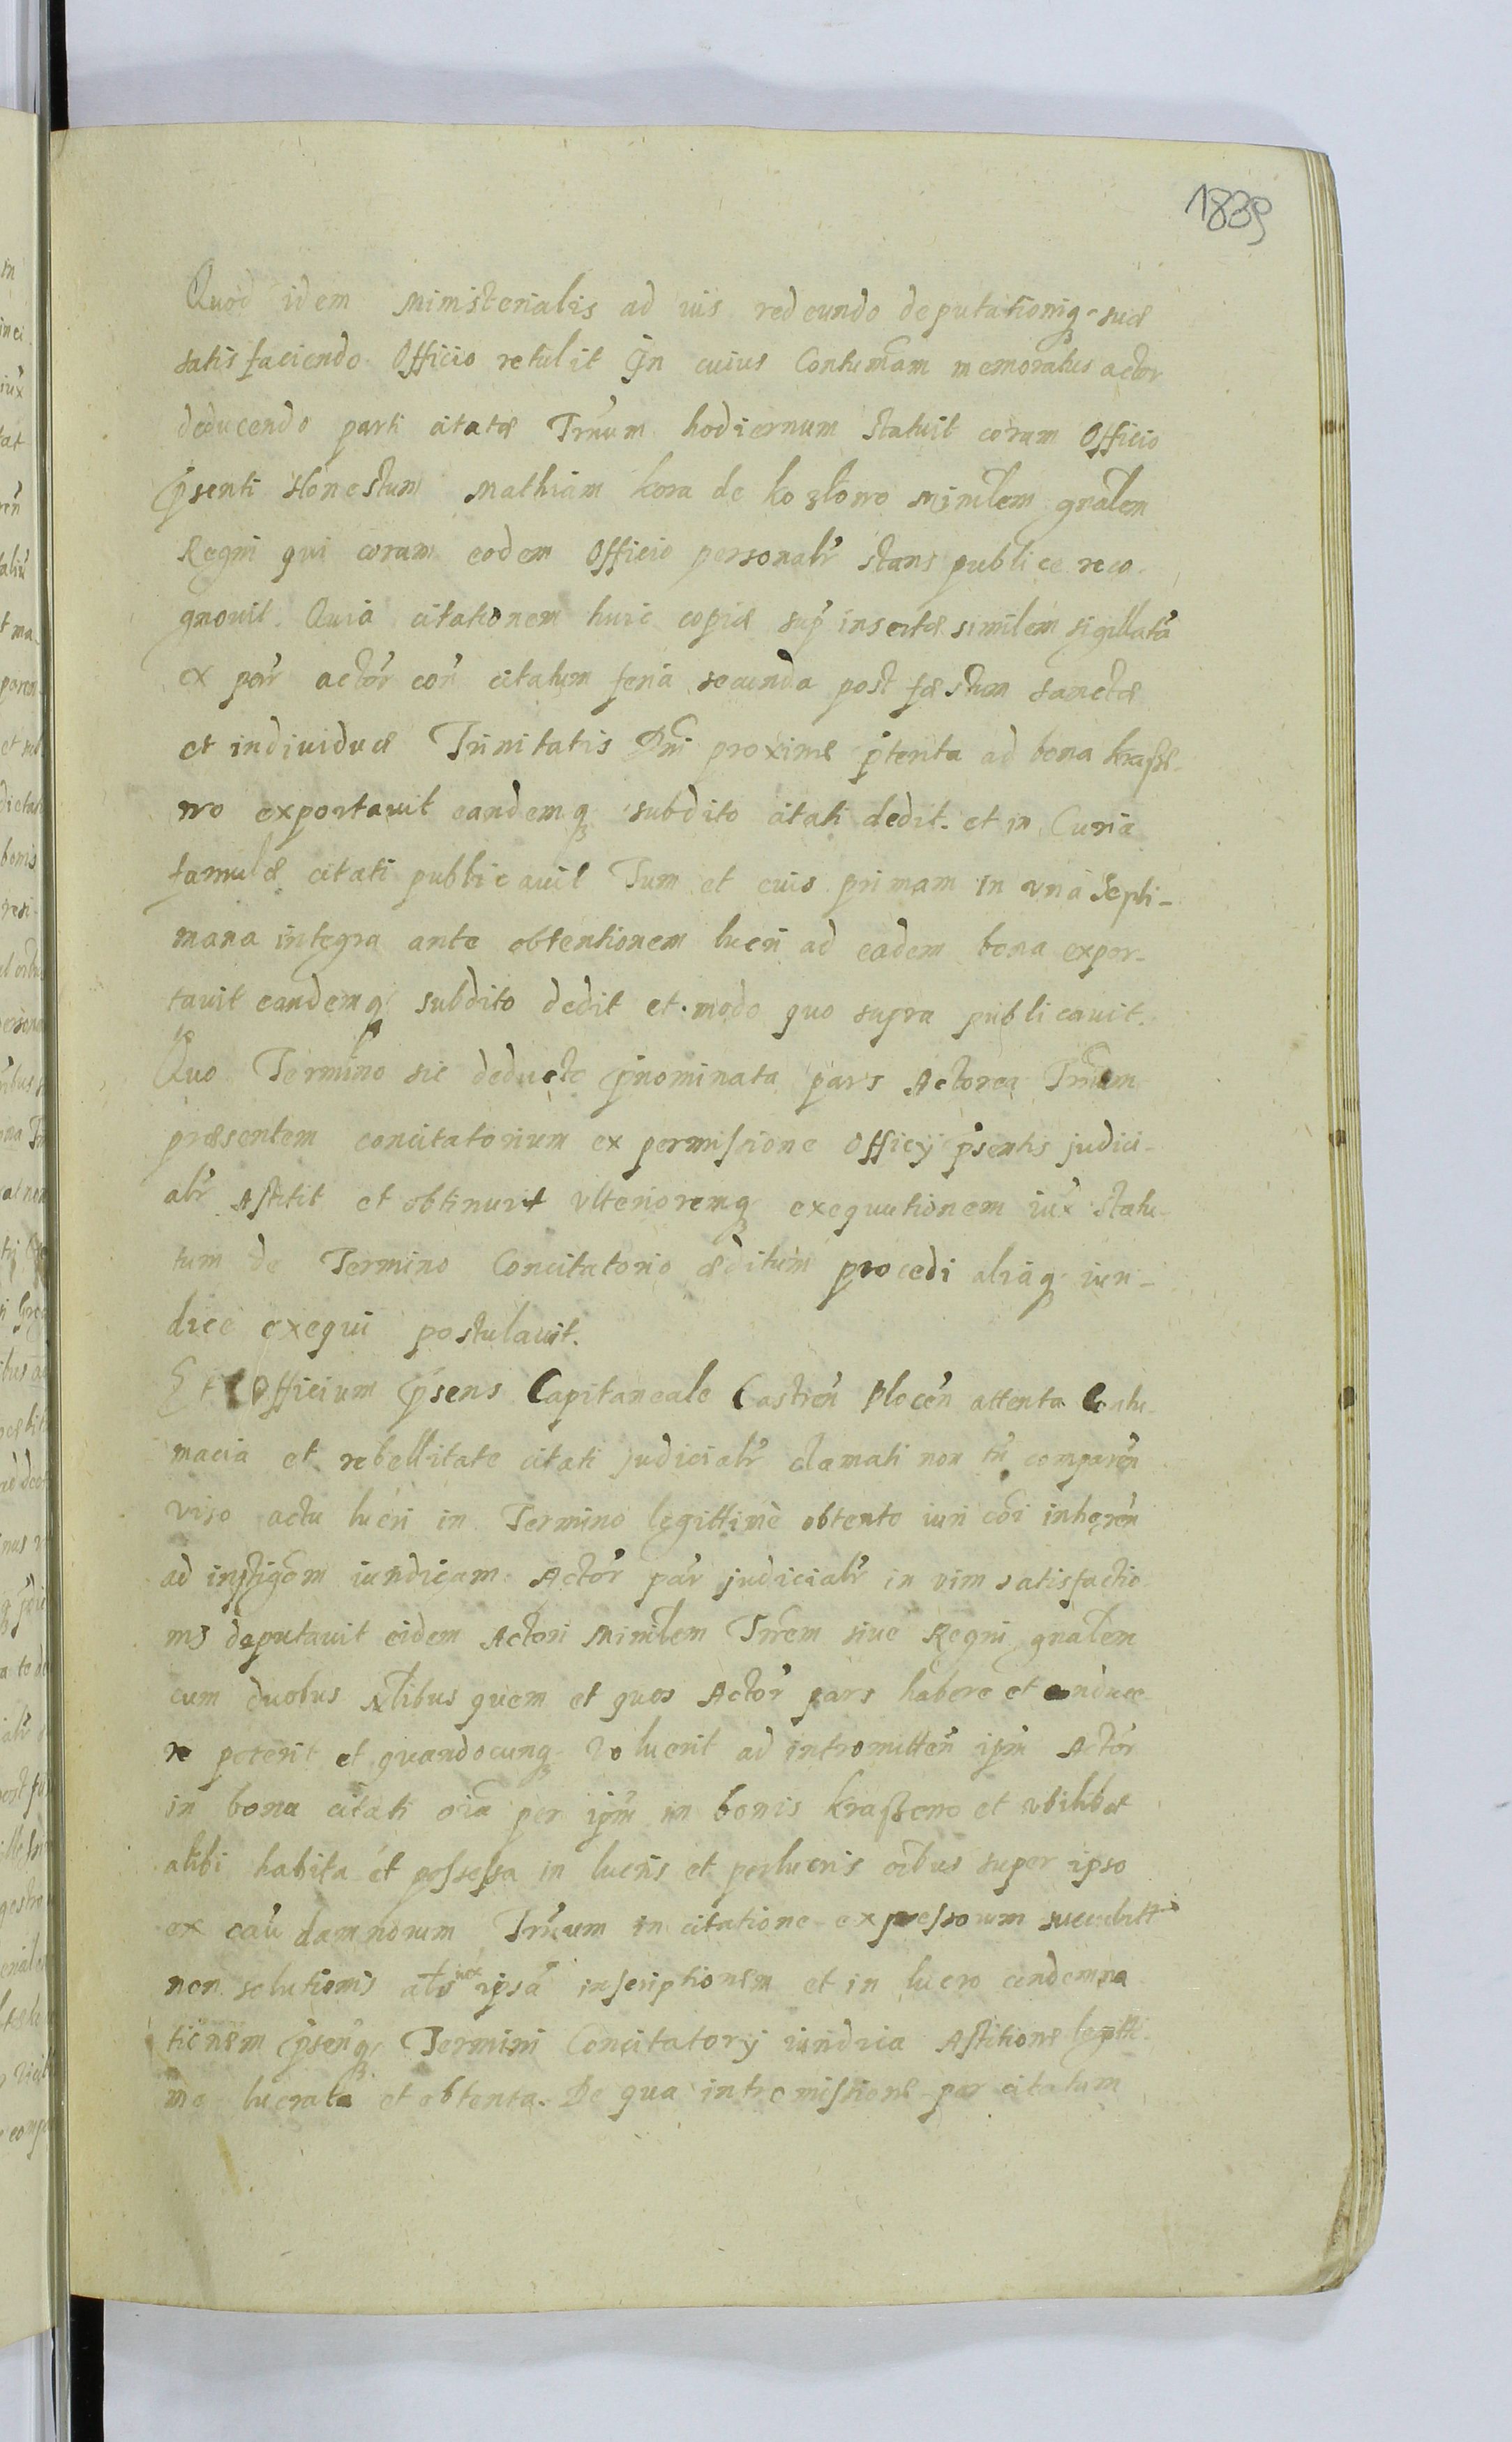 1839
Quod idem Ministerialis ad ius redeundo deputationiq3 suæ
satisfaciendo Officio retulit In cuius Contumãm memoratus actor
deducendo parti citatæ Trnum hodiernum statuit coram Officio
p̃senti Honestum Mathiam kora de kozłowo Minĩlem gnãlem
Regni qui coram eodem Officio personalr̃ stans publice reco-
gnouit. Quia citationem huic copiæ sup̃ insertæ similem sigillatã
ex par̃ actor̃ coñ citatum feria secunda post fæstum sanctæ
et indiuiduæ Trinitatis Dni proxime p̃terita ad bona kraße-
wo exportauit eandemq3 subdito citati dedit. et in Curia
famulæ citati publicauit Tum et eius primam in vna Septi-
mana integra ante obtentionem lucri ad eadem bona expor-
tauit eandemq3 subdito dedit et modo quo supra publicauit.
Quo Termino sic deducto p̃nominata pars Actorea Trñum
præsentem concitatorium ex permissione Officÿ p̃sentis judici-
alr̃ Astitit et obtinuit vlterioremq3 exequutionem iux̃ statu-
tum de Termino Concitatorio æditum procedi aliaq3 iuri-
dice exequi postulauit.
Et Officium p̃sens Capitaneale Castreñ Ploceñ attenta Contu-
macia et rebellitate citati judicialr̃ clamati non tñ compareñ
viso actu lucri in Termino legittimè obtento iuri cõi inhęreñ
ad instigõem iuridicam Actor̃ par̃ judicialr̃ in vim satisfactio
nis deputauit eidem Actori Minĩlem Trrẽm siue Regni gnãlem
cum duobus Nlibus quem et quos Actor̃ pars habere et conduce-
re poterit et quandocunq3 voluerit ad intromitteñ ipm̃ Actor̃
in bona citati oĩa per ipm̃ in bonis kraßewo et vbilibet
alibi habita et possessa in lucris et perlucris oĩbus super ipso
ex caũ damnorum Trnũum in citatione expressorum
non solutionis iux̃ ipsã inscriptionem et in lucro condemna
tionem p̃senq3 Termini Concitatorÿ iuridica Astitione legitti-
me lucrata et obtenta. De qua intromissione per citatum